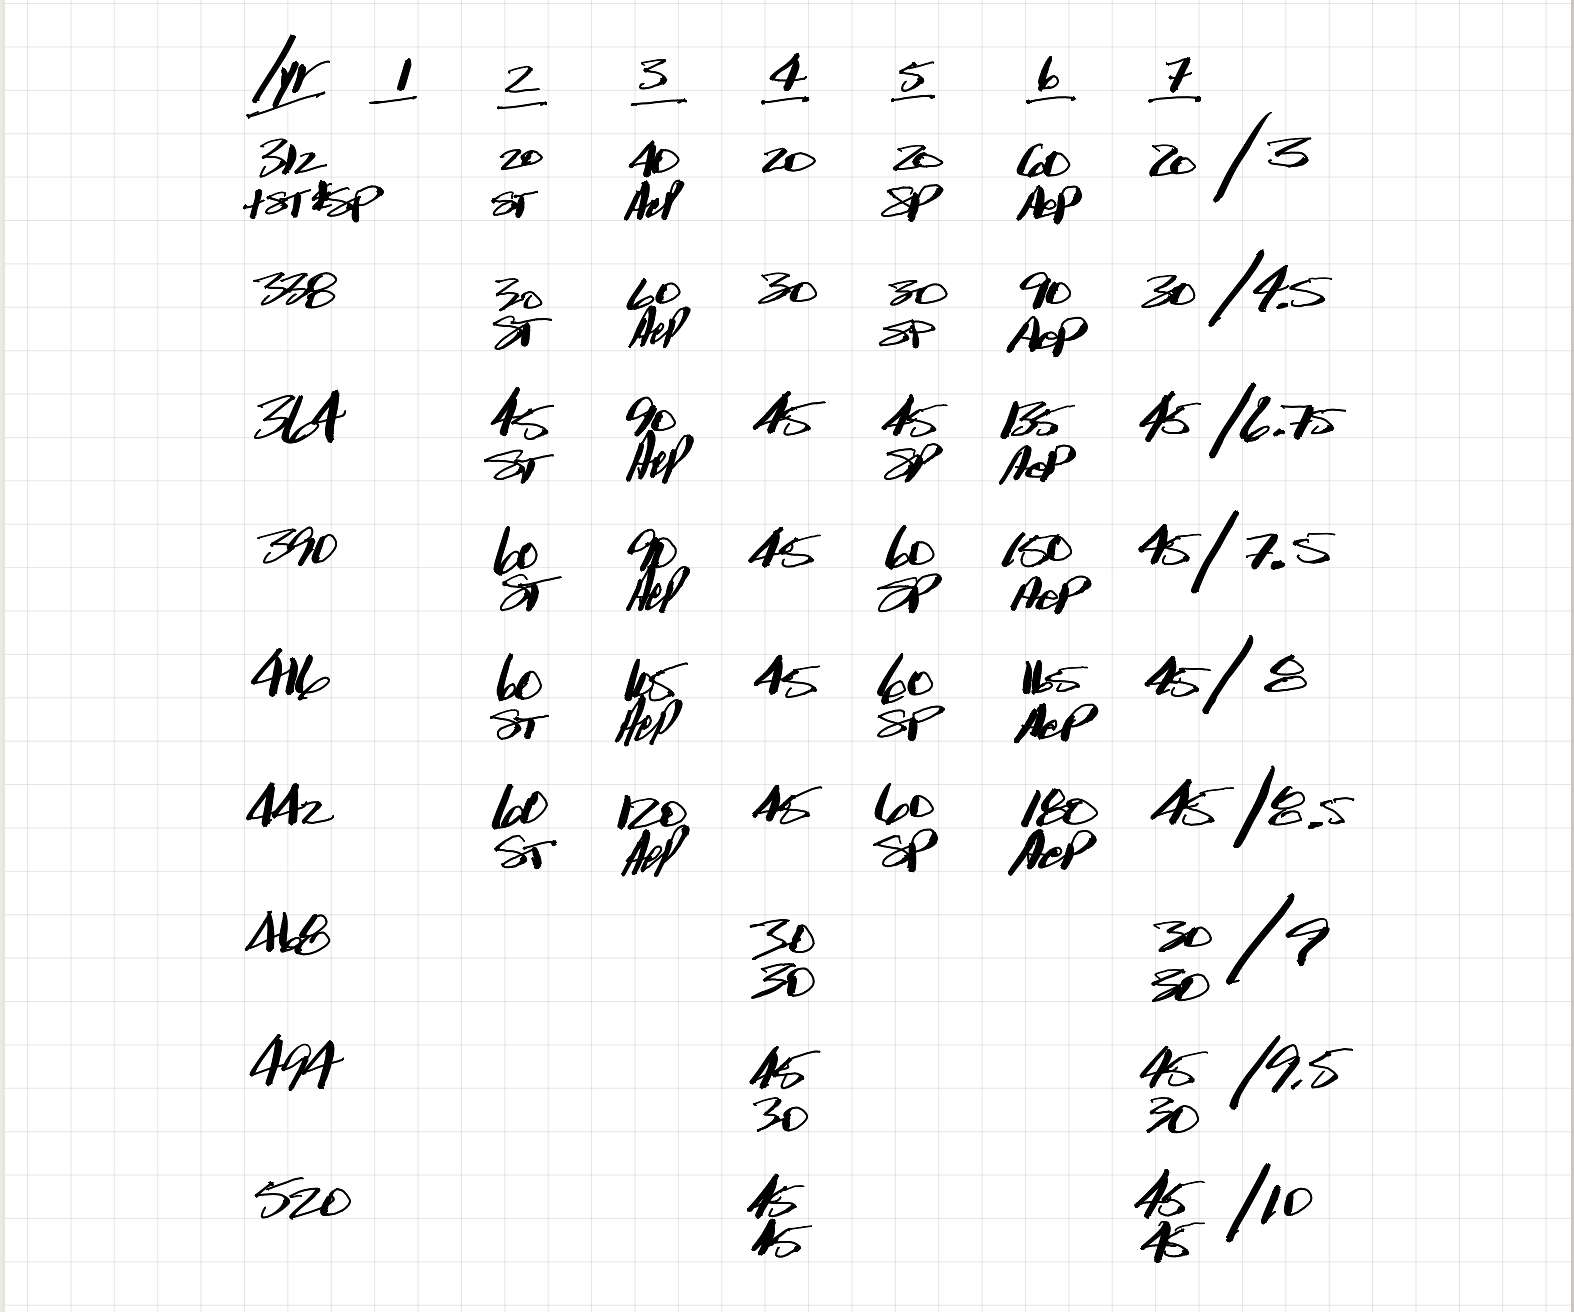 /yr 1 2 3 4 5 6 7
312 20 40 20 20 60 20 / 3
+ST&SP ST AeP SP AeP
338 30 60 30 30 90 30 / 4.5
ST AeP SP AeP
364 45 90 45 45 135 45 / 6.75
ST AeP SP AeP
390 60 90 45 60 150 45 / 7.5
ST AeP SP AeP
416 60 105 45 60 165 45 / 8
ST AeP SP AeP
442 60 120 45 60 180 45 / 8.5
ST AeP SP AeP
468 30 30 / 9
30 30
494 45 45 / 9.5
30 30
520 45 45 / 10
45 45